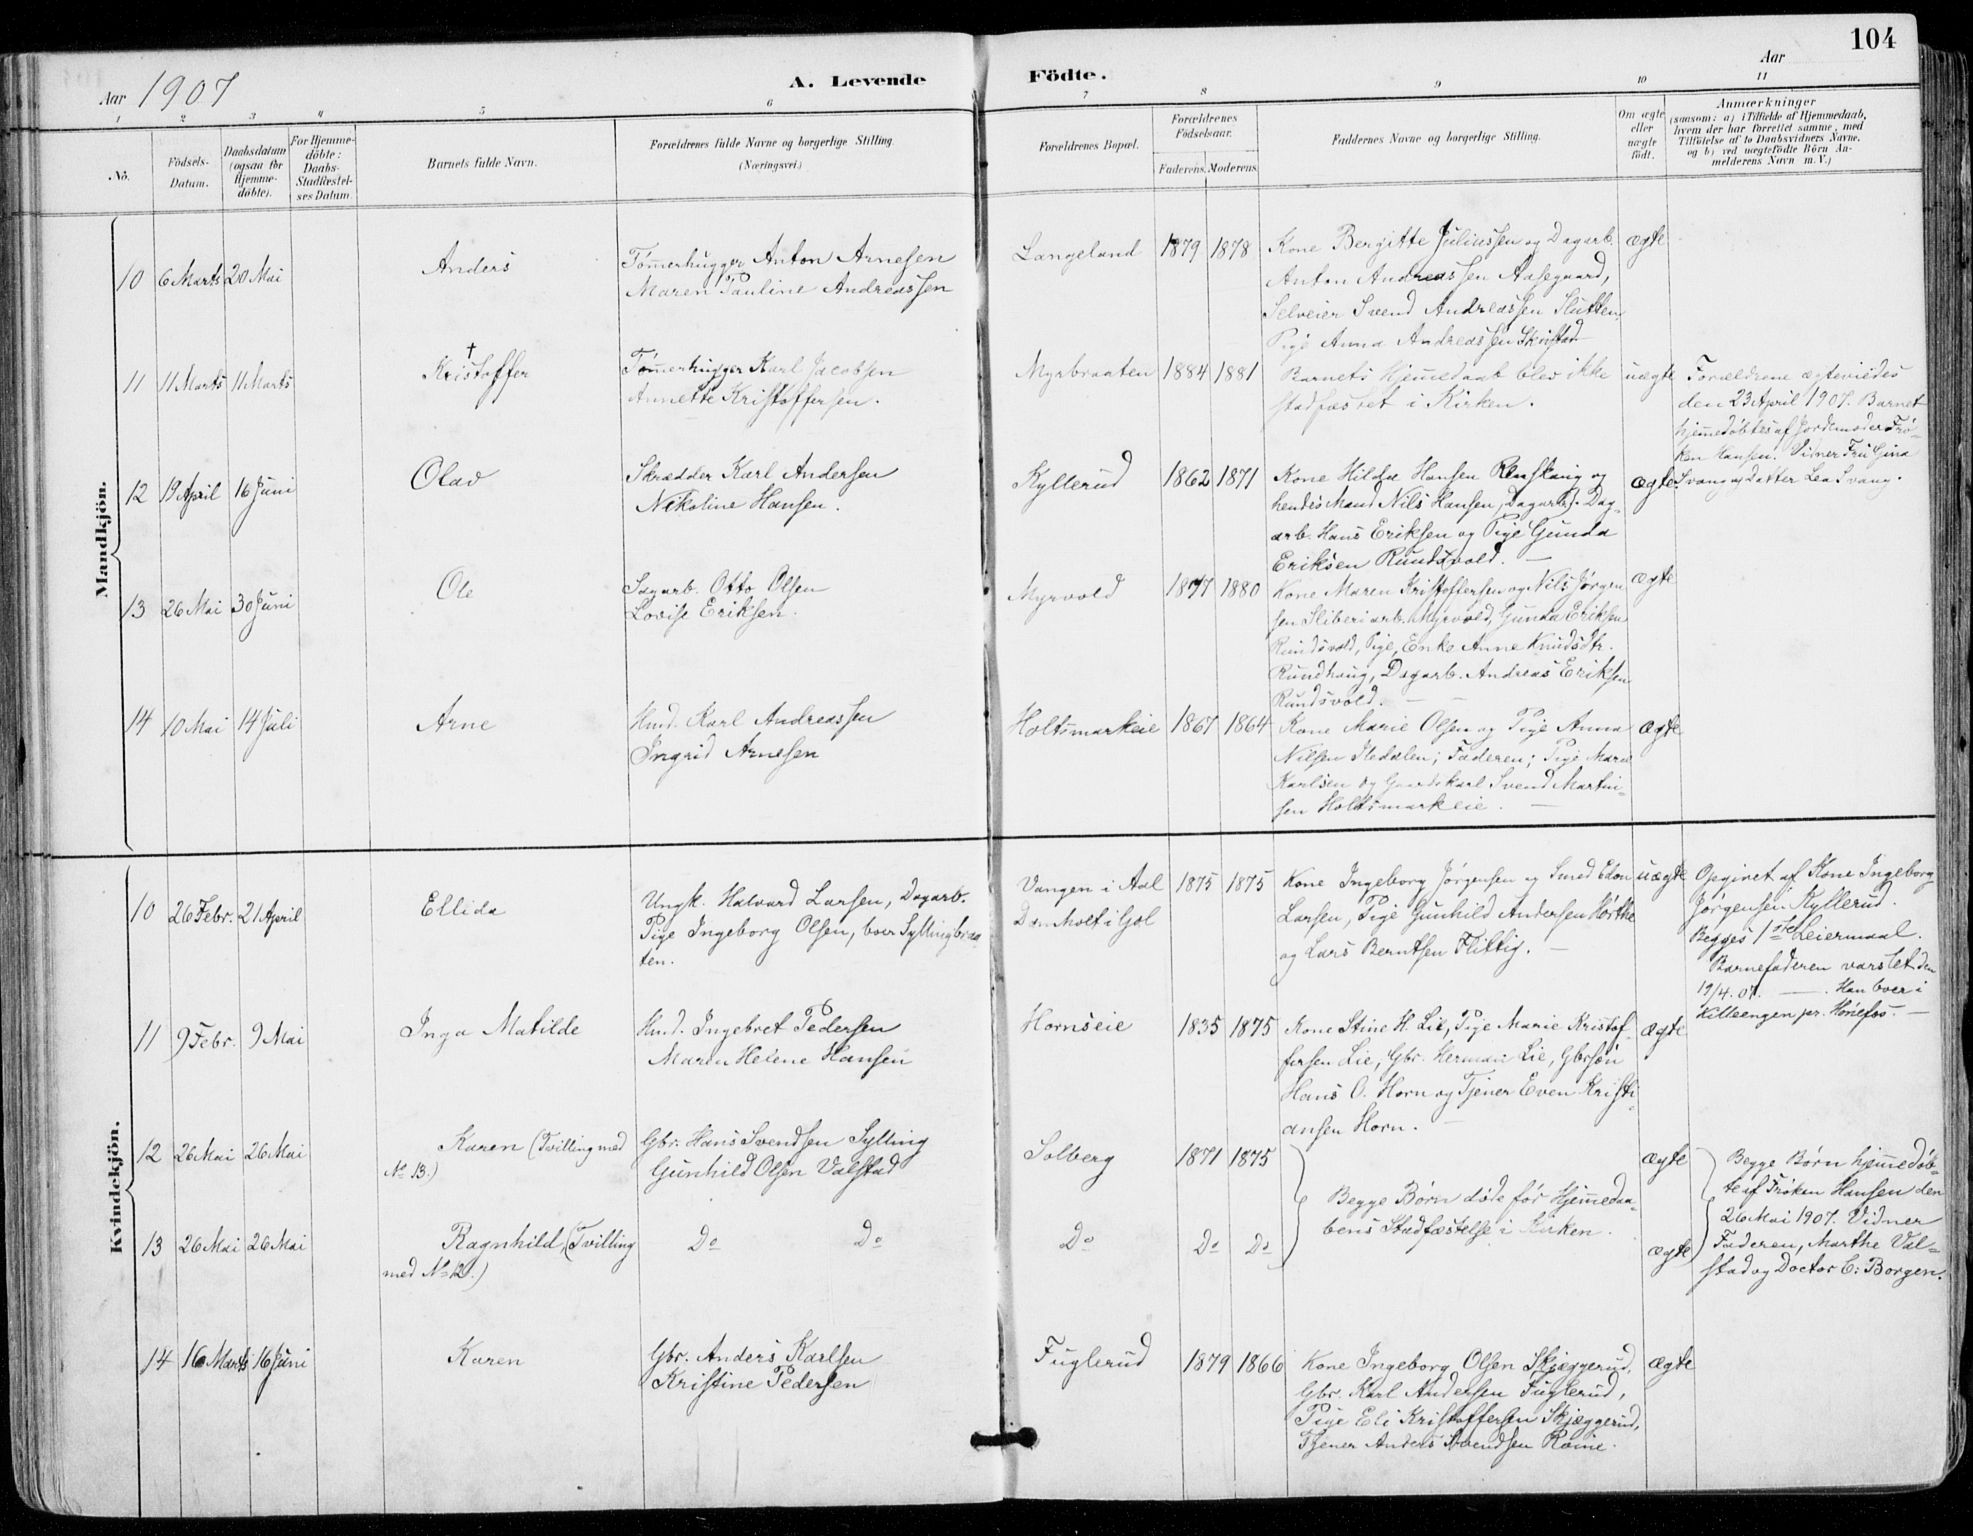 104
Aar 1907
A. Levende Födte.
Aar
1 2 3 4 5 6 7 8 9 10 11
No.
Födsels-Datum.
Daabsdatum (ogsaa för Hjemme-döbte).
For Hjemme-döbte: Daabs-Stadfæstel-ses Datum
Barnets fulde Navn.
Forældrenes fulde Navne og borgerlige Stilling.
(Næringsvei.)
Forældrenes Bopæl.
Forældrenes Födselsaar.
Faderens. Moderens.
Faddernes Navne og borgerlige Stilling.
Om ægte eller uægte födt.
Anmærkninger
(saasom: a) i Tilfælde af Hjemmedaab,
hvem der har forrettet samme, med
Tilföielse af to Daabsvidners Navne.
og b) ved uægtefödte Börn An-
melderens Navn m. V.)
Mandkjön.
10 6 Marts 20 Mai
Anders
Tømerhugger Anton Arnesen
Maren Pauline Andreassen
Langeland 1879 1878
Kone Bergitte Juliussen og Dagarb.
Anton Andreassen Aasegaard,
Selveier Svend Andreassen Slutten,
Pige Anna Andreassen Skristad
ægte
11 11 Marts 11 Marts
†
Kristoffer
Tømerhugger Karl Jacobsen
Annette Kristoffersen.
Myrbraaten 1884 1881
Barnets Hjemedaab blev ikke
stadfæstet i Kirken.
uægte
Forældrene ægteviedes
den 23 April 1907. Barnet
hjemedøbtes af Jordemoder Frø-
ken Hansen. Vidner Fru Gina
Svang og Datter Lea Svang.
12 19 April 16 Juni
Olav
Skrædder Karl Andersen
Nikoline Hansen.
Kyllerud 1862 1871
Kone Hilda Hansen Renskaug og
hendes Mand Nils Hansen, Dagarb). Dag-
arb. Hans Eriksen og Pige Gunda
Eriksen Rundsvold. —
ægte.
13 26 Mai 30 Juni
Ole
Sagarb. Otto Olsen
Lovise Eriksen.
Myrvold 1877 1880
Kone Maren Kristoffersen og Nils Jørgen
sen Sliberiarb. Myrvold, Gunda Eriksen
Rundsvold, Pige, Enke Anne Knudsdtr.
Rundhaug, Dagarb. Andreas Eriksen
Rundsvold. —
ægte
14 10 Mai 14 Juli
Arne
Hmd. Karl Andreassen
Ingrid Arnesen
Holtsmarkeie 1867 1864
Kone Marie Olsen og Pige Anna
Nilsen Iledalen; Faderen; Pige Maren
Karlsen og Gaardskarl Svend Martin-
sen Holtsmarkeie. —
ægte
Kvindekjön.
10 26 Febr. 21 April
Ellida
Ungk. Halvard Larsen, Dagarb.
Pige Ingeborg Olsen, boer Syllingbraa
ten.
Vangen i Aal 1875 1875
Do. Moltei Gol
Kone Ingeborg Jørgensen og Smed Edon
Larsen, Pige Gunhild Andersen Hørthe
og Lars Berntsen Flittig. —
uægte
Opgivet af Kone Ingeborg
Jørgensen Kyllerud.
Begges 1ste Leiermaal.
Barnefaderen varslet den
19/4.07. — Han boer i
Killeengen pr. Hønefos. —
11 9 Febr. 9 Mai
Inga Matilde
Hmd. Ingebret Pedersen
Maren Helene Hansen
Hornseie 1835 1875
Kone Stine H. Lie, Pige Marie Kristof-
fersen Lie, Gbr. Herman Lie, Gbrsøn
Hans O. Horn og Tjener Even Kristi-
ansen Horn. —
ægte
12 26 Mai 26 Mai
Karen (Tvilling med
No 13.)
Gbr. Hans Svendsen Sylling
Gunhild Olsen Valstad
Solberg 1871 1875
Begge Børn døde før Hjemedaa-
bens Stadfæstelse i Kirken.
ægte
Begge Børn hjemedøb-
te af Frøken Hansen den
26 Mai 1907. Vidner
Faderen, Marthe Val-
stad og Doctor C: Borgen.
13 26 Mai 26 Mai
Ragnhild, (Tvilling
med No 12.)
Do Do
Do Do Do
ægte
14 16 Marts 16 Juni
Karen
Gbr. Anders Karlsen
Kristine Pedersen
Fuglerud 1879 1866
Kone Ingeborg Olsen Skjæggerud,
Gbr. Karl Andersen Fuglerud,
Pige Eli Kristoffersen Skjæggerud,
Tjener Anders Svendsen Roine.
ægte